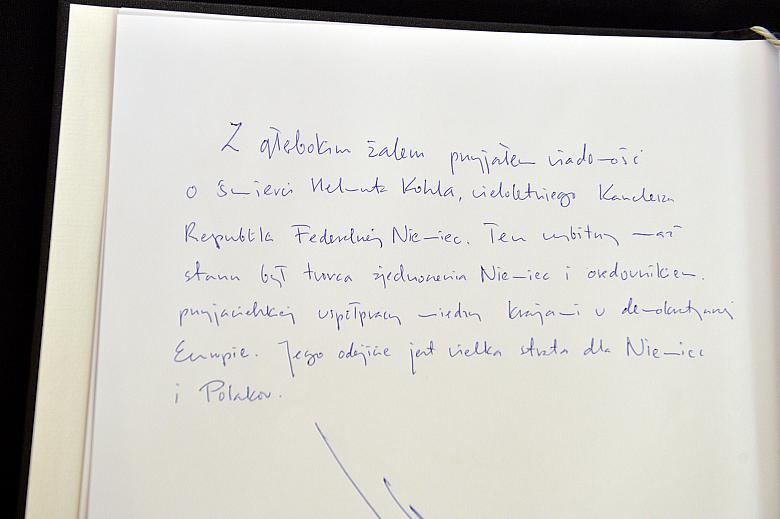 Z głębokim żalem przyjąłem wiadomości
o śmierci Helmuta Kohla, wieloletniego Kanclerza
Republiki Federalnej Niemiec. Ten wybitny mąż
stanu był twórcą zjednoczenia Niemiec i orędownikiem
przyjacielskiej współpracy między krajami w demokratycznej
Europie. Jego odejście jest wielką stratą dla Niemiec
i Polaków.